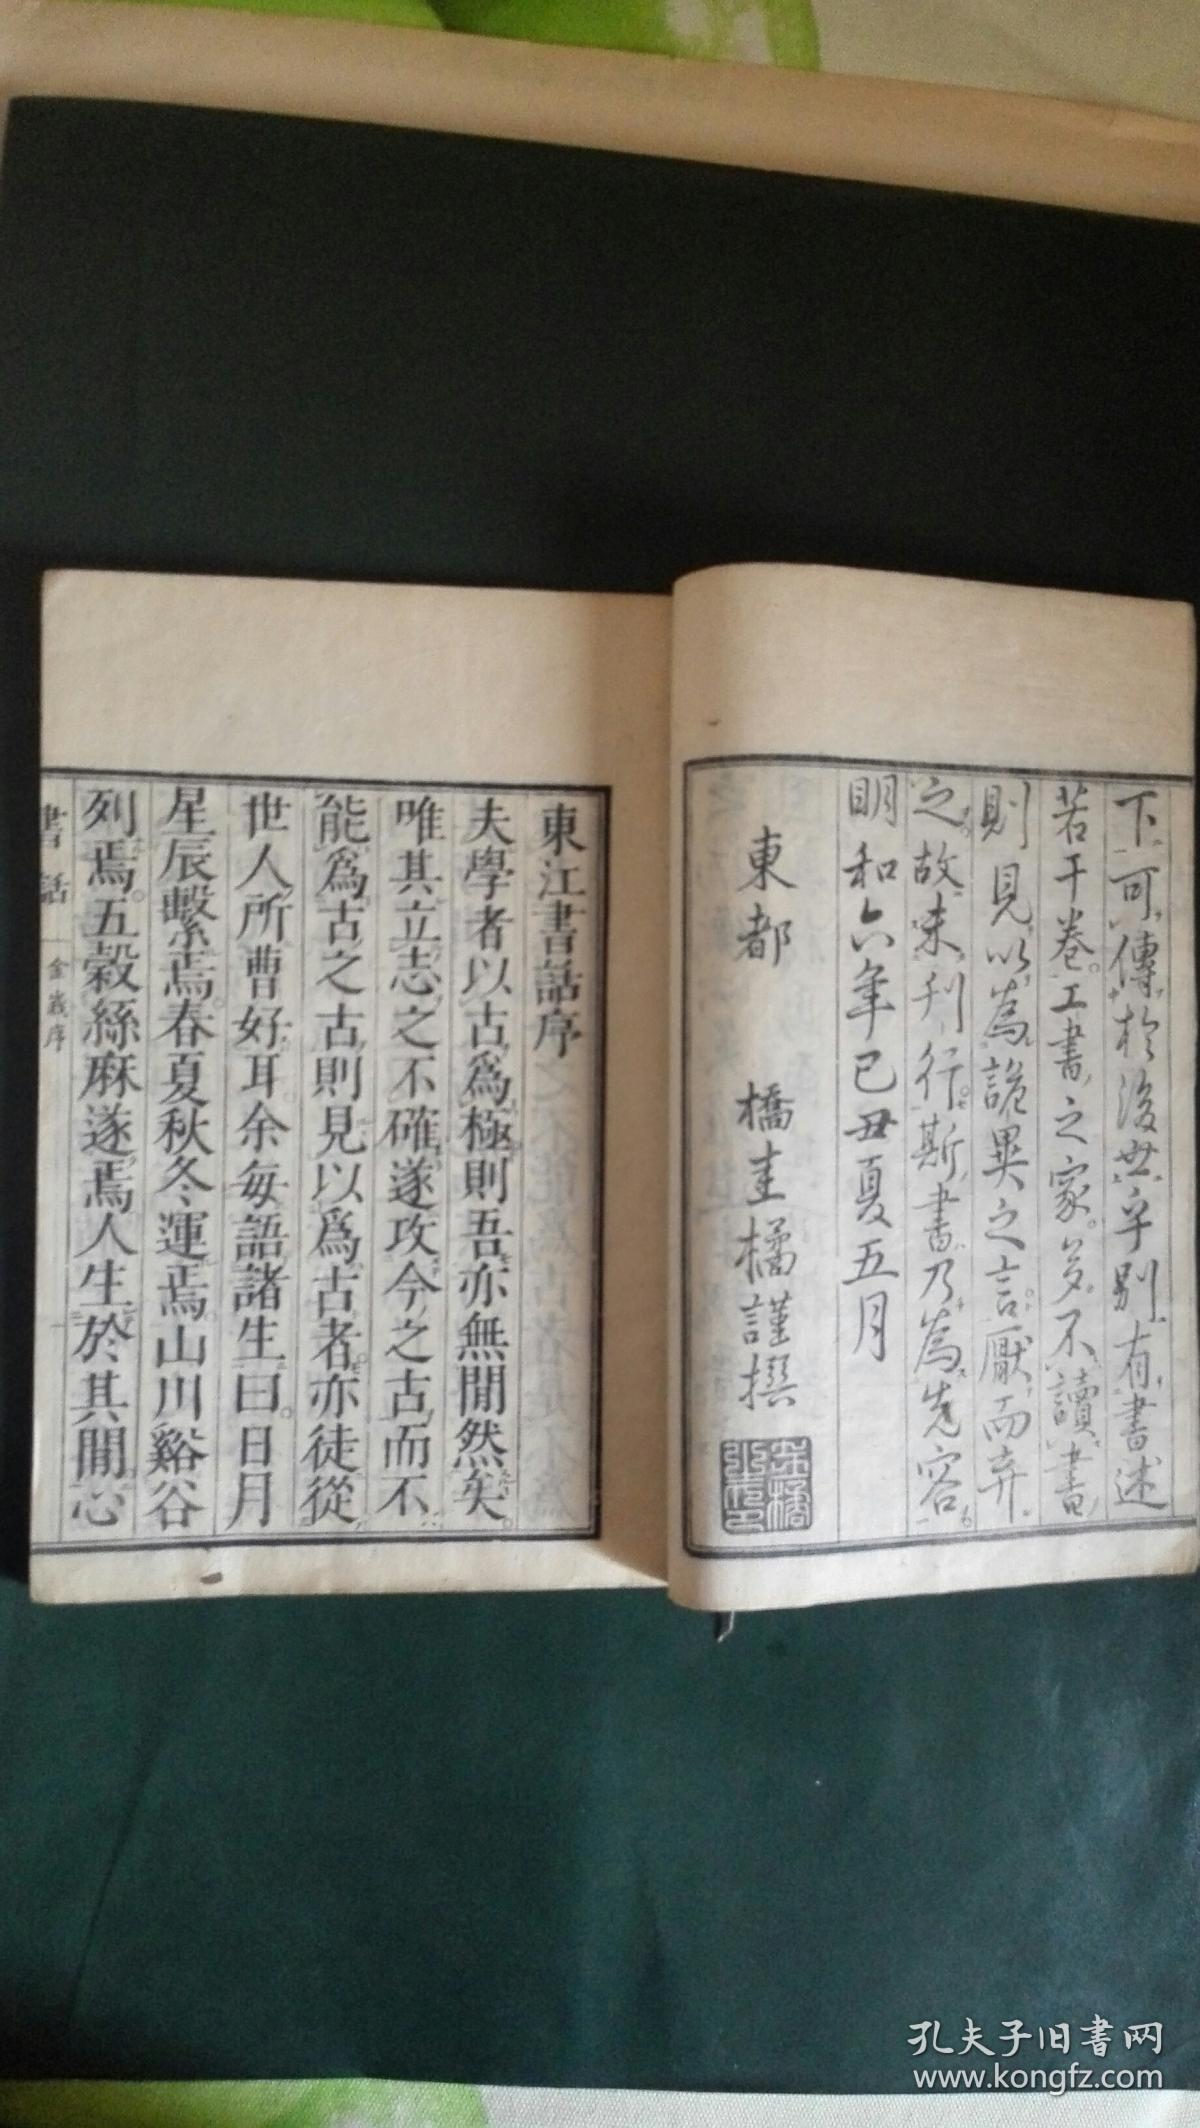 下可傳於後世乎別有書述
若干卷工書之家多不讀書
則見以為詭異之言厭而弃
之故未刊行斯書乃為先容
明和六年己丑夏五月
東都　橋圭橘謹撰
東江書話序
夫學者以古爲極則吾亦無閒然矣
唯其立志之不確遂攻今之古而不
能爲古之古則見以爲古者亦徒從
世人所曹好耳余每語諸生曰日月
星辰繫焉春夏秋冬運焉山川谿谷
列焉五穀絲麻遂焉人生於其閒心
書話　金峩序
孔夫子旧书网
www.kongfz.com